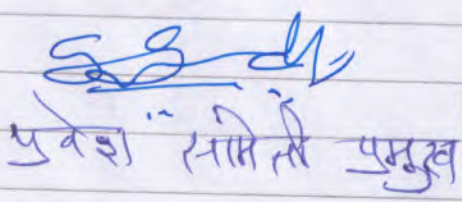 प्रवेश समिती प्रमुख